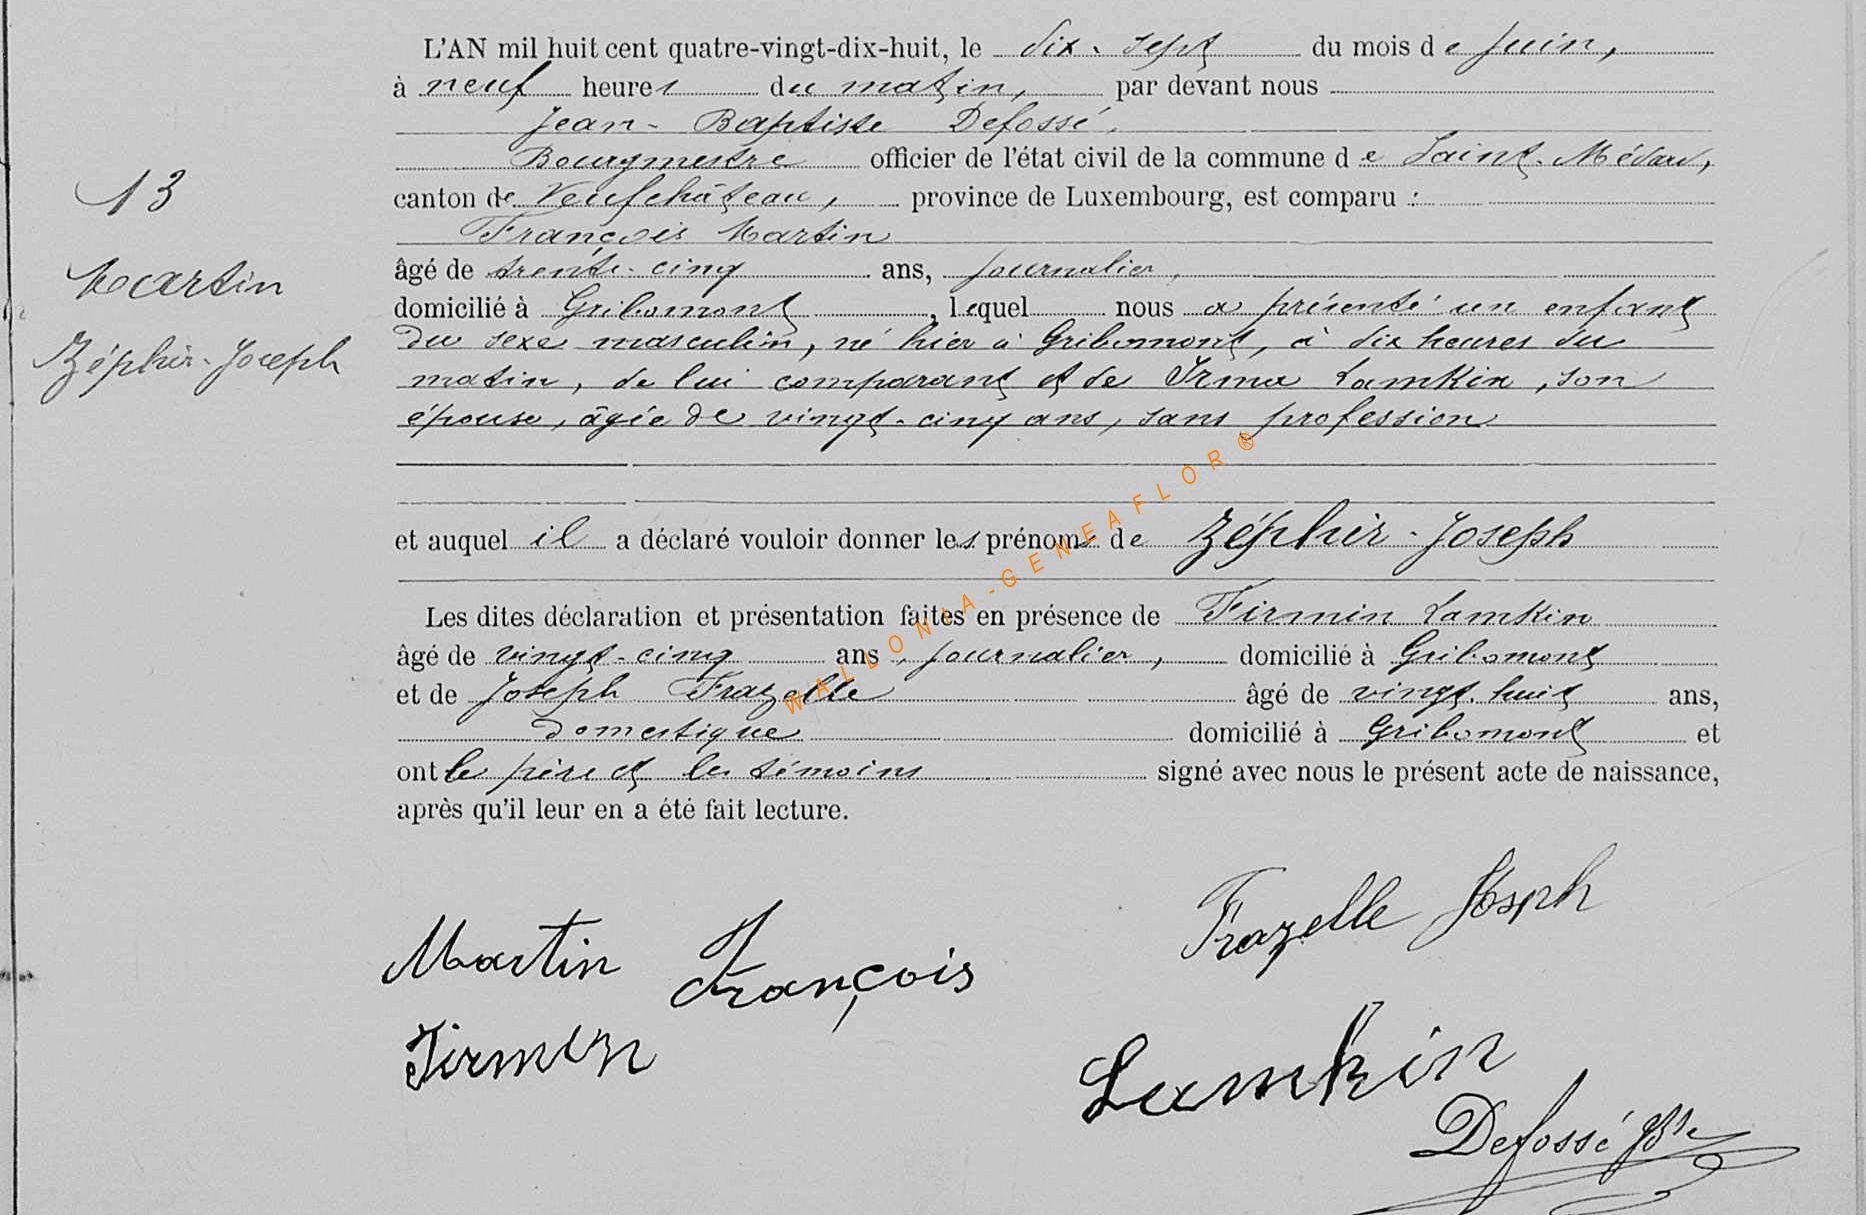 L'AN mil huit cent quatre-vingt-dix-huit, le dix-sept du mois de juin,
à neuf heures du matin, par devant nous
Jean-Baptiste Defossé,
Bourgmestre officier de l'état civil de la commune de Saint-Médard,
canton de Neufchâteau, province de Luxembourg, est comparu :
François Martin
âgé de trente-cinq ans, journalier,
domicilié à Gribomont, lequel nous a présenté un enfant
du sexe masculin, né hier à Gribomont, à dix heures du
matin, de lui comparant et de Irma Lamkin, son
épouse, âgée de vingt-cinq ans, sans profession
et auquel il a déclaré vouloir donner les prénoms de Zéphir-Joseph
Les dites déclaration et présentation faites en présence de Firmin Lamkin
âgé de vingt-cinq ans, journalier, domicilié à Gribomont
et de Joseph Frazelle âgé de vingt-huit ans,
domestique domicilié à Gribomont et
ont le père et les témoins signé avec nous le présent acte de naissance,
après qu'il leur en a été fait lecture.
13
Martin
Zéphir-Joseph
WALLONIA-GENEAFLOR®
Frazelle Josph
Martin François
Firmin Lamkin
Defossé JBte